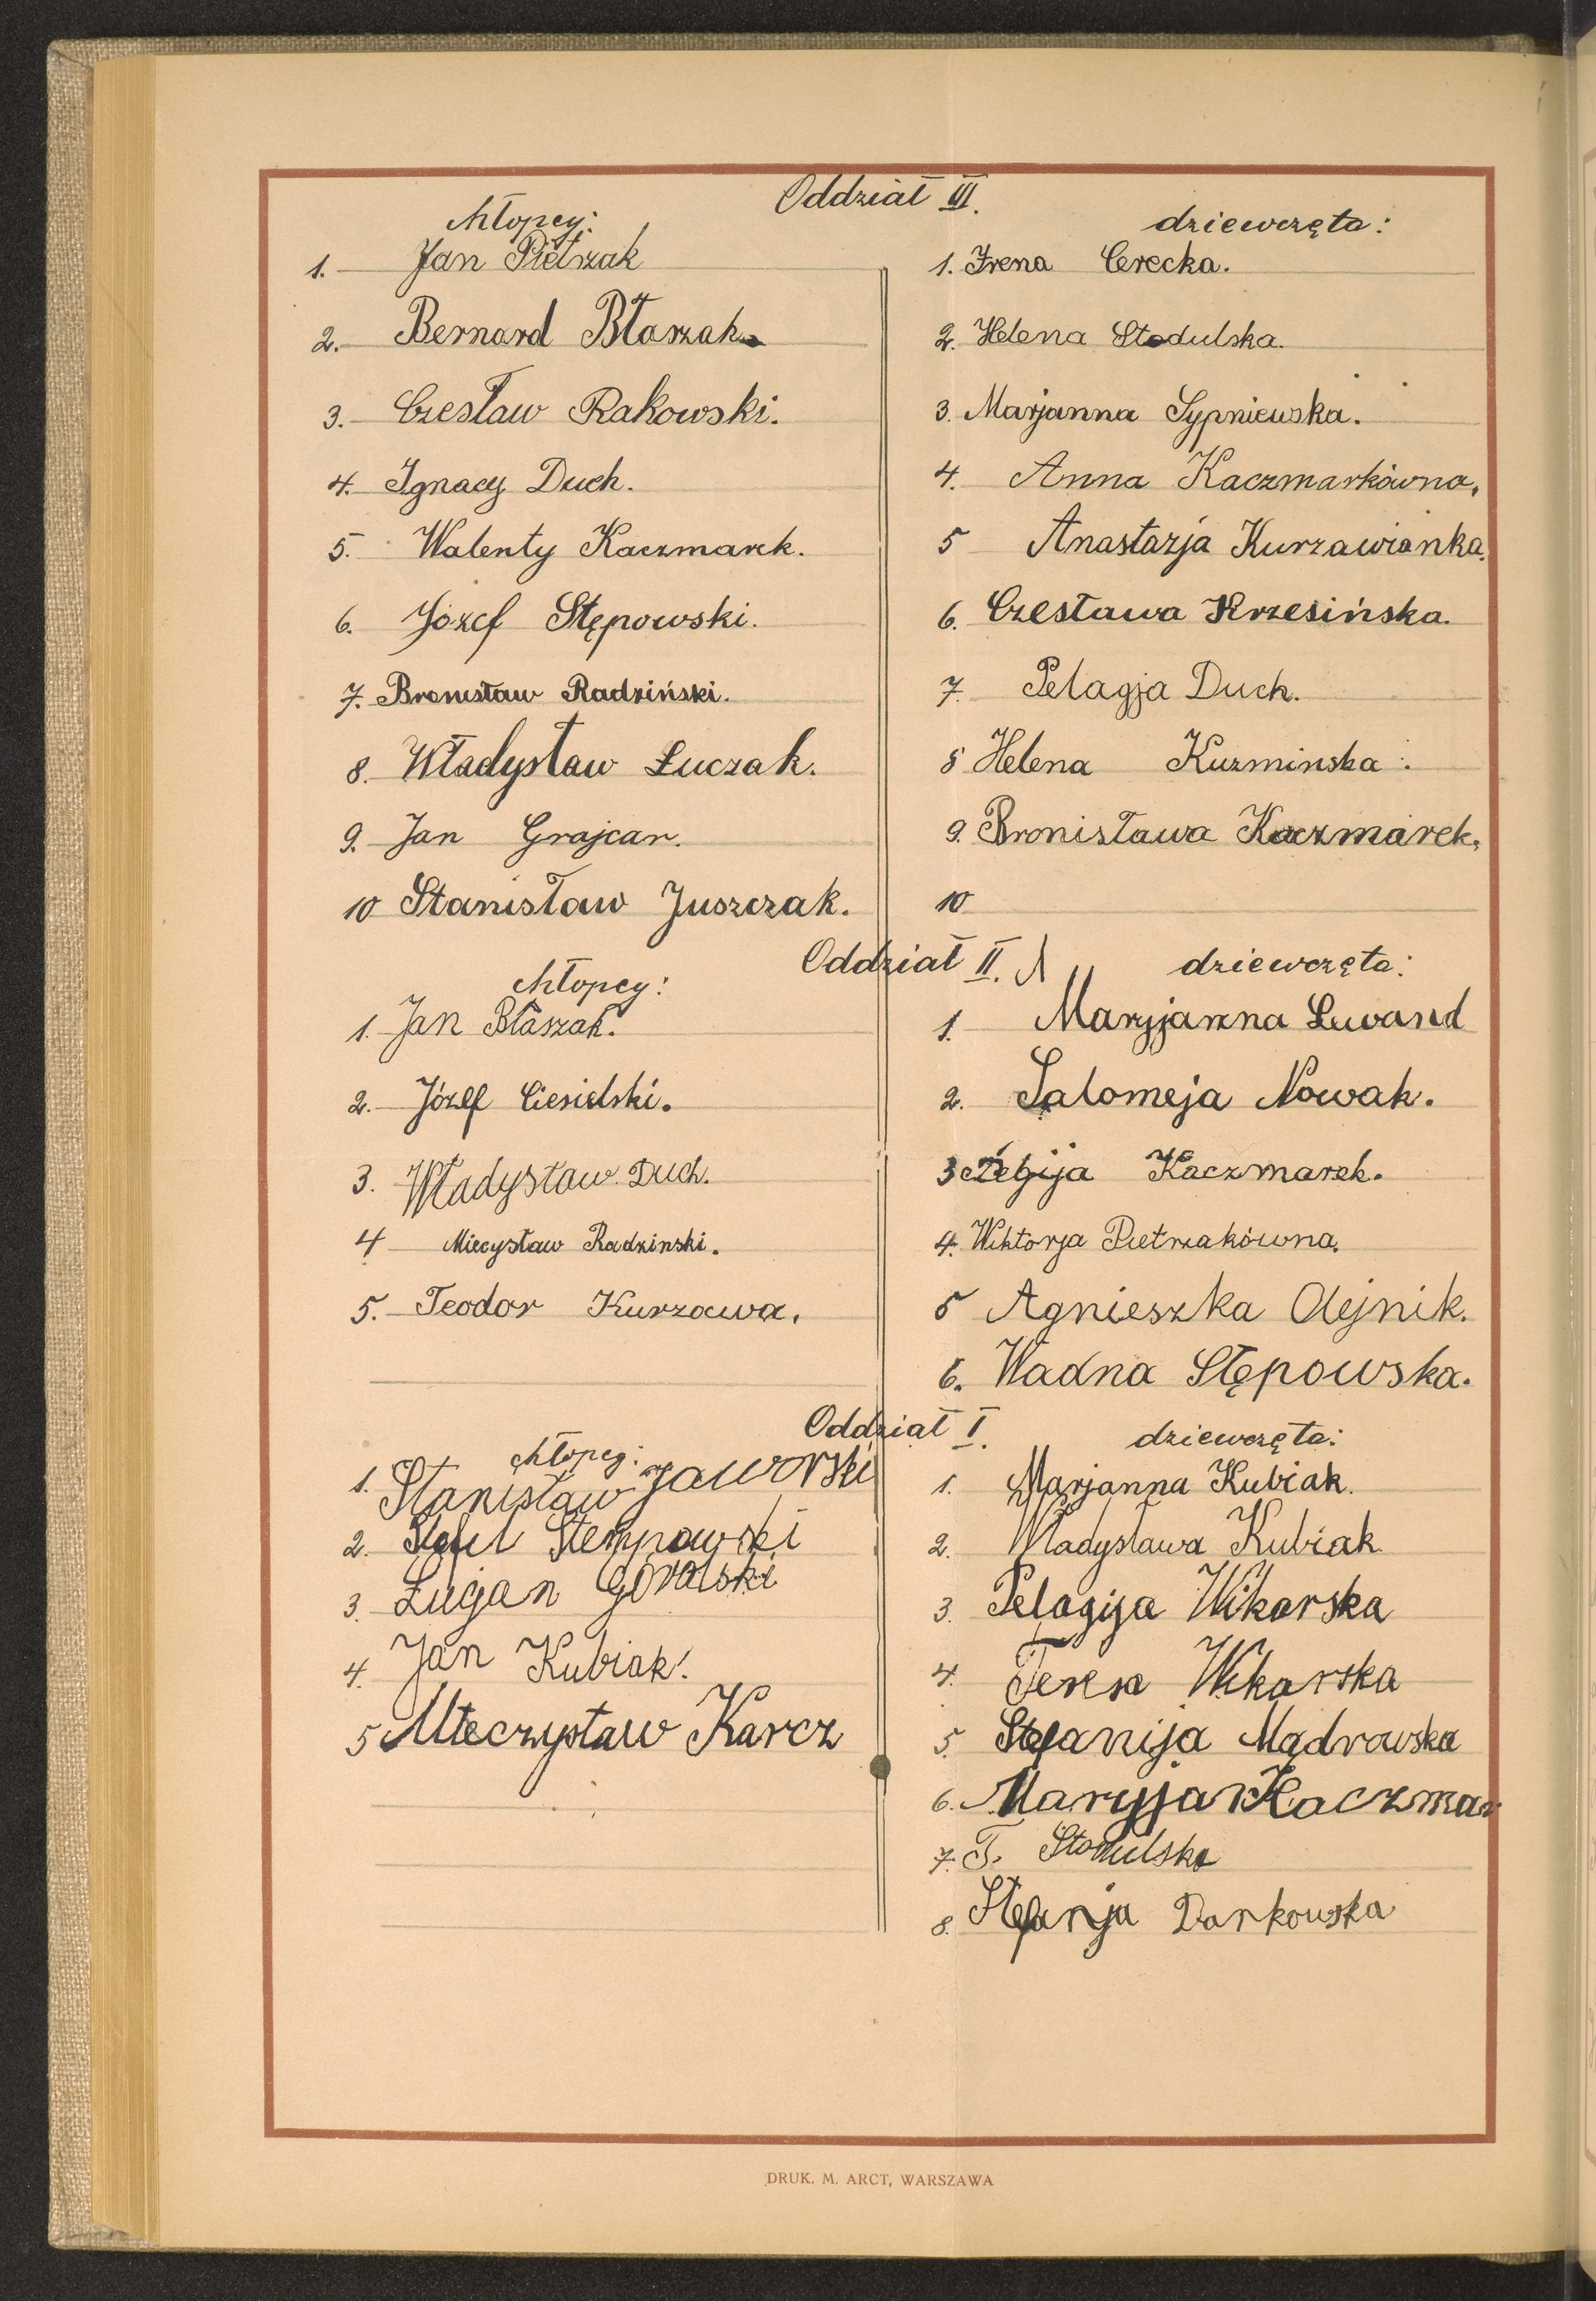 Oddział III.
chłopcy:
1. Jan Pietrzak
2. Bernard Błaszak
3. Czesław Rakowski.
4. Ignacy Duch.
5. Walenty Kaczmarek.
6. Józef Stępowski.
7. Bronisław Radziński.
8. Władysław Łuczak.
9. Jan Grajcar.
10 Stanisław Juszczak.
dziewczęta:
1. Irena Cerecka.
2. Helena Stodulska.
3. Marjanna Sypniewska.
4. Anna Kaczmarkówna.
5 Anastazja Kurzawianka.
6. Czesława Krzesińska.
7. Pelagja Duch.
8 Helena Kuzminska.
9. Bronisława Kaczmarek.
10
Oddział II.
chłopcy:
1. Jan Błaszak.
2. Józef Ciesielski.
3. Władysław Duch.
4 Miecysław Radzinski.
5. Teodor Kurzawa.
dziewczęta:
1. Maryjanna Lewand
2. Salomeja Nowak.
3 Kaczmarek.
4. Wiktorja Pietrzakówna.
5 Agnieszka Olejnik.
6. Wadna Stępowska.
Oddział I.
chłopcy:
1. Stanisław Jaworski
2. Stempowski
3. Góralski
4. Jan Kubiak.
5 Mieczysław Karcz
dziewczęta:
1. Marjanna Kubiak.
2. Władysława Kubiak.
3. Pelagija Wikarska
4. Teresa Wikarska
5. Stefanija Mądrowska
6. Maryja Kaczmar
7. T. Stodulska
8. Stefanja Darkowska
DRUK. M. ARCT, WARSZAWA